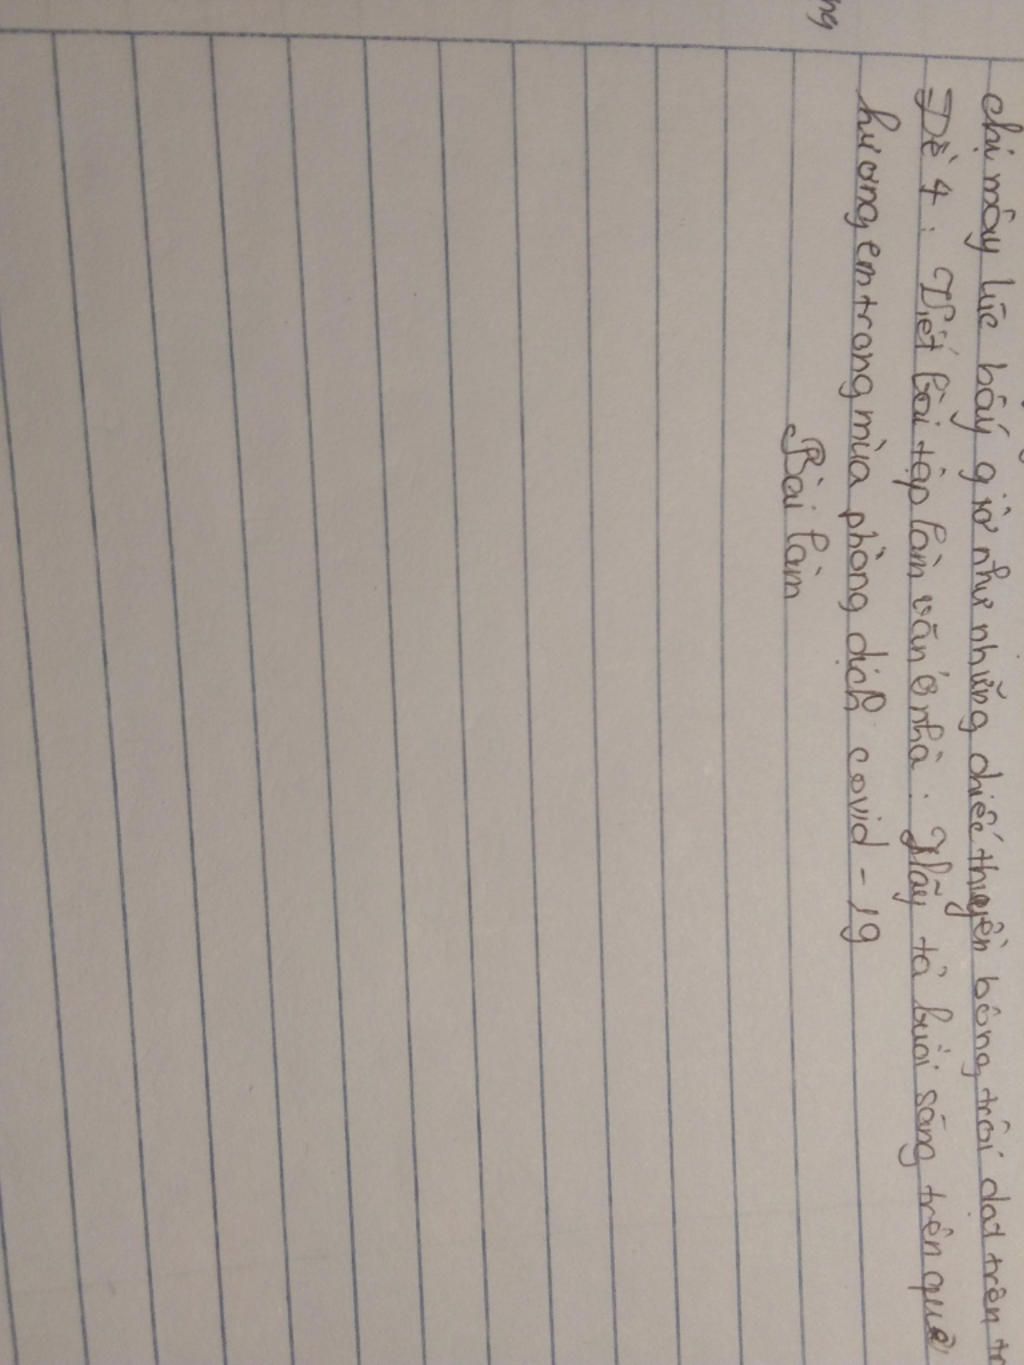 ng
chị mây lúc bấy giờ như những chiếc thuyền bông trôi dạt trên tr
Đề 4: Viết bài tập làm văn ở nhà: Hãy tả buổi sáng trên quê
hương em trong mùa phòng dịch covid-19
Bài làm